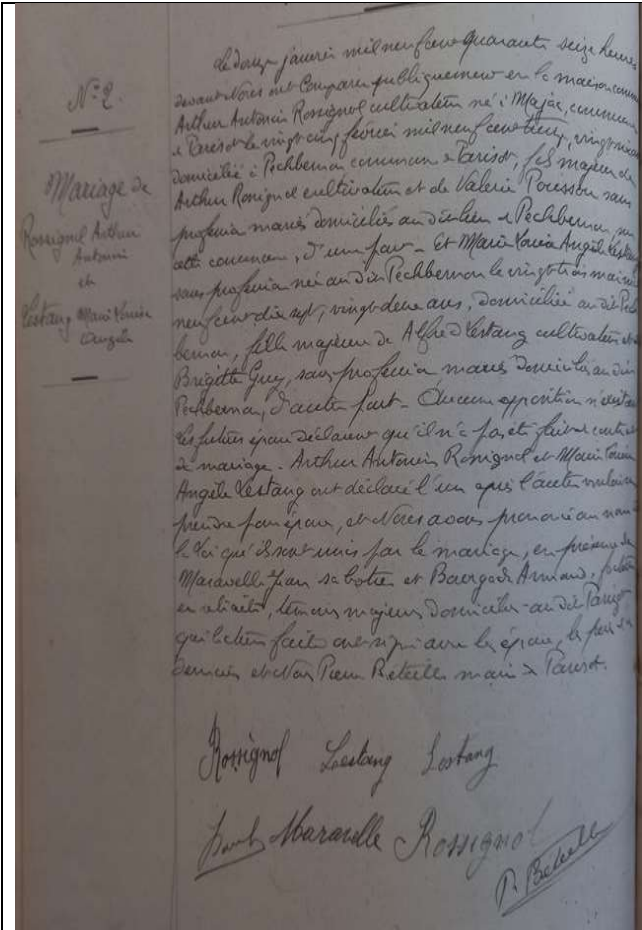 N° 2.
Mariage de
Rossignol Arthur
Antonin
et
Lestang Marie Louise
Angèle
Le douze janvier mil neuf cent quarante seize heures
devant Nous ont comparu publiquement en la maison commune
Arthur Antonin Rossignol cultivateur né à commune
de Parisot le vingt cinq février mil neuf cent
domicilié à Pechbernon commune de Parisot, fils majeur de
Arthur Rossignol cultivateur et de Valérie Pousson sans
profession mariés domiciliés au dit lieu de Pechbernon
cette commune, d'une part - Et Marie Louise Angèle Lestang
sans profession née au dit Pechbernon le vingt trois mai mil
neuf cent dix sept, vingt deux ans, domiciliée au dit Pech
bernon, fille majeure de Alfred Lestang cultivateur et de
Brigitte Guy, sans profession mariés domiciliés au dit
Pechbernon, d'autre part - Aucune opposition n'existant
Les futurs époux déclarent qu'il n'a pas été fait de contrat
de mariage - Arthur Antonin Rossignol et Marie Louise
Angèle Lestang ont déclaré l'un après l'autre vouloir
prendre pour époux, et Nous avons prononcé au nom de
la Loi qu'ils sont unis par le mariage, en présence de
Maravelle Jean sabotier et Armand,
en retraite, témoins majeurs domiciliés au dit Parisot
qui lecture faite ont signé avec les époux, les pères
derniers et Nous Pierre Béteille maire de Parisot.
Rossignol Lestang Lestang
Maravelle Rossignol
P. Béteille